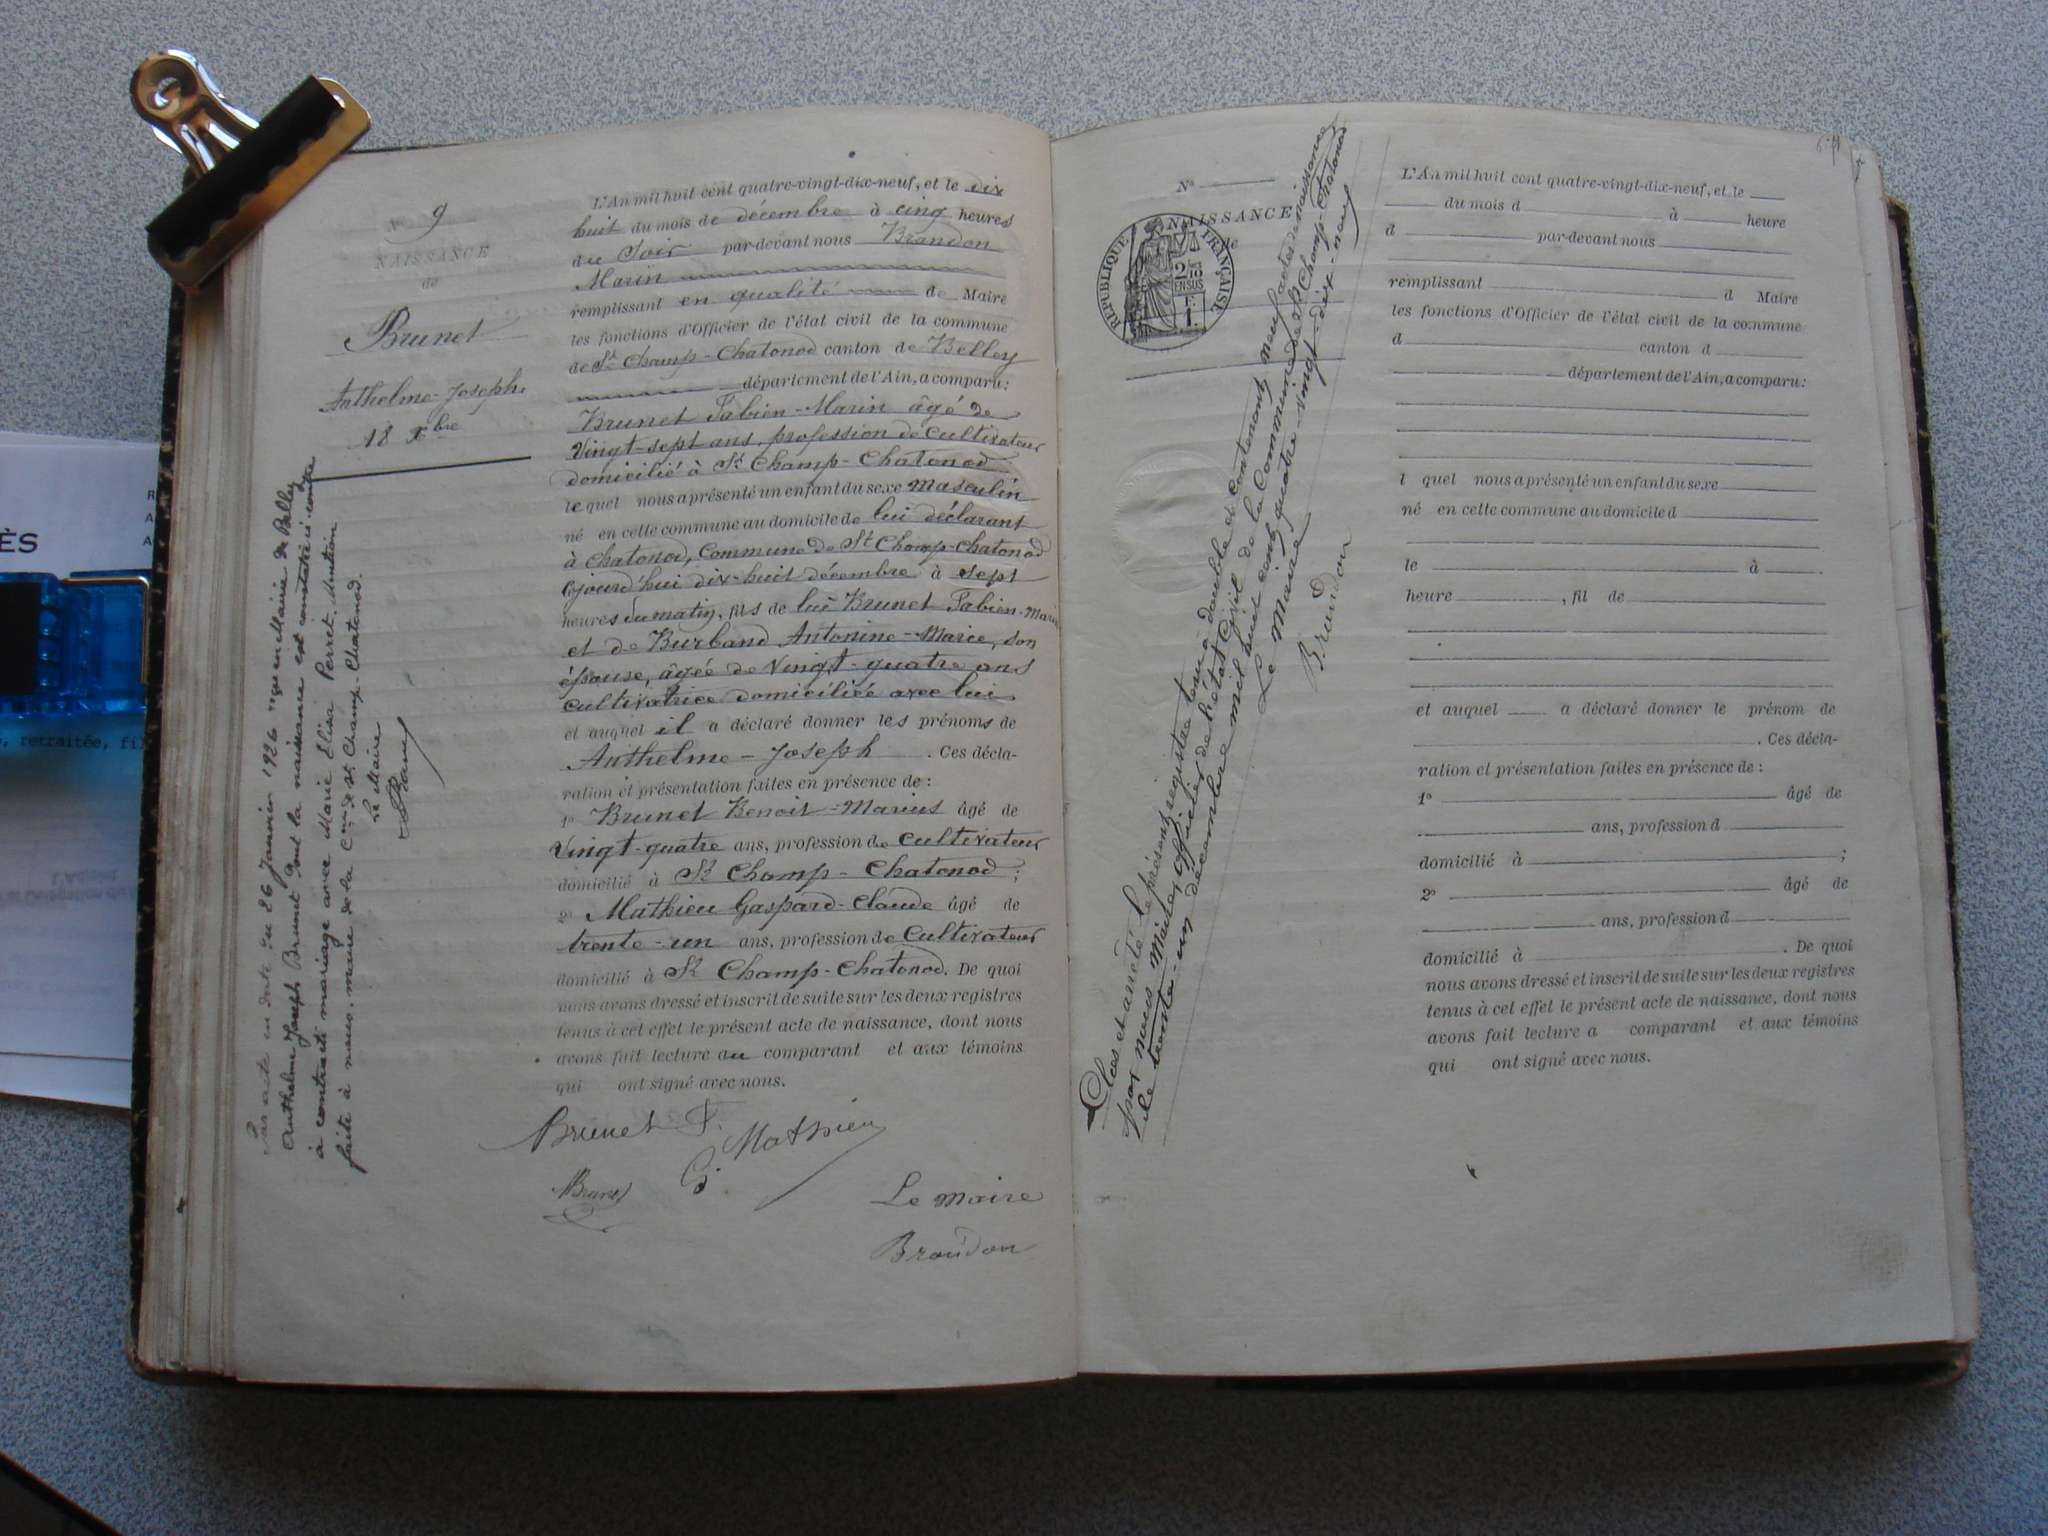 N° 9
NAISSANCE
de
Brunet
Anthelme-Joseph.
18 Xbre
Par acte en date du 26 Janvier 1926 reçu en Mairie de Belley
Anthelme Joseph Brunet dont la naissance est constatée ci-contre
a contracté mariage avec Marie Elisa Perret. Mention
faite à nous, maire de la Cne de St Champ-Chatonod.
Le Maire
L'An mil huit cent quatre-vingt-dix-neuf, et le dix
huit du mois de décembre à cinq heures
du Soir par-devant nous Brandon
Marin
remplissant en qualité de Maire
les fonctions d'Officier de l'état civil de la commune
de St Champ-Chatonod canton de Belley
département de l'Ain, a comparu:
Brunet Fabien-Marin âgé de
Vingt-sept ans, profession de Cultivateur
domicilié à St Champ-Chatonod
lequel nous a présenté un enfant du sexe Masculin
né en cette commune au domicile de lui déclarant
à Chatonod, Commune de St Champ-Chatonod
ajourd'hui dix-huit décembre à sept
heures du matin, fils de lui Brunet Fabien-Marin
et de Burband Antonine-Marie, son
épouse, âgée de Vingt-quatre ans
Cultivatrice domiciliée avec lui
et auquel il a déclaré donner les prénoms de
Anthelme-Joseph . Ces décla-
ration et présentation faites en présence de :
1° Brunet Benoit-Marius âgé de
Vingt-quatre ans, profession de Cultivateur
domicilié à St Champ-Chatonod ;
2° Mathieu Gaspard-Claude âgé de
trente-un ans, profession de Cultivateur
domicilié à St Champ-Chatonod. De quoi
nous avons dressé et inscrit de suite sur les deux registres
tenus à cet effet le présent acte de naissance, dont nous
avons fait lecture au comparant et aux témoins
qui ont signé avec nous.
Brunet F.
Mathieu
G
Brunet
Le Maire
Brandon
N°
NAISSANCE
de
RÉPUBLIQUE FRANÇAISE
2/10 EN SUS
F.
1.
Clos et arrêté le présent registre tenu à double et contenant neuf actes de naissance
par nous Maire, Officier de l'état Civil de la Commune de St Champ-Chatonod
le trente-un décembre mil huit cent quatre vingt-dix-neuf
Le Maire
Brandon
L'An mil huit cent quatre-vingt-dix-neuf, et le
du mois d à heure
d par-devant nous
remplissant d Maire
les fonctions d'Officier de l'état civil de la commune
d canton d
département de l'Ain, a comparu:
l quel nous a présenté un enfant du sexe
né en cette commune au domicile d
le à
heure , fil de
et auquel a déclaré donner le prénom de
. Ces décla-
ration et présentation faites en présence de :
1° âgé de
ans, profession d
domicilié à ;
2° âgé de
ans, profession d
domicilié à . De quoi
nous avons dressé et inscrit de suite sur les deux registres
tenus à cet effet le présent acte de naissance, dont nous
avons fait lecture a comparant et aux témoins
qui ont signé avec nous.
ÈS
, retraitée, fil